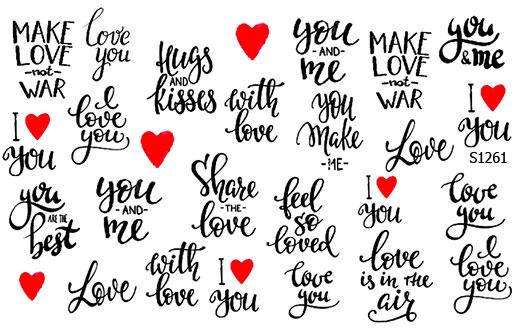 MAKE
LOVE
-not-
WAR
love
you
Hugs
AND
kisses
you
-AND-
me
MAKE
LOVE
-not-
WAR
you
& me
I
you
I
love
you
with
love
you
Make
-ME-
Love
I
You
S1261
you
ARE THE
best
you
-AND-
me
Share
-THE-
love
feel
so
loved
I
You
love
you
Love
with
love
I
You
love
you
love
is in the
air
I
love
you